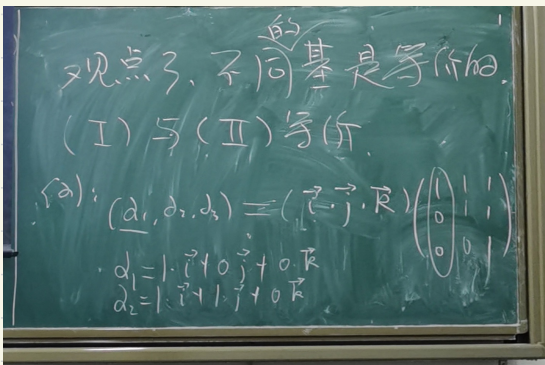 观点3、不同的基是等价的.
(Ⅰ)与(Ⅱ)等价.
(2): (α₁,α₂,α₃)=(i⃗,j⃗,k⃗)(1 1 1
0 1 1
0 0 1)
α₁=1·i⃗+0j⃗+0·k⃗
α₂=1·i⃗+1·j⃗+0k⃗